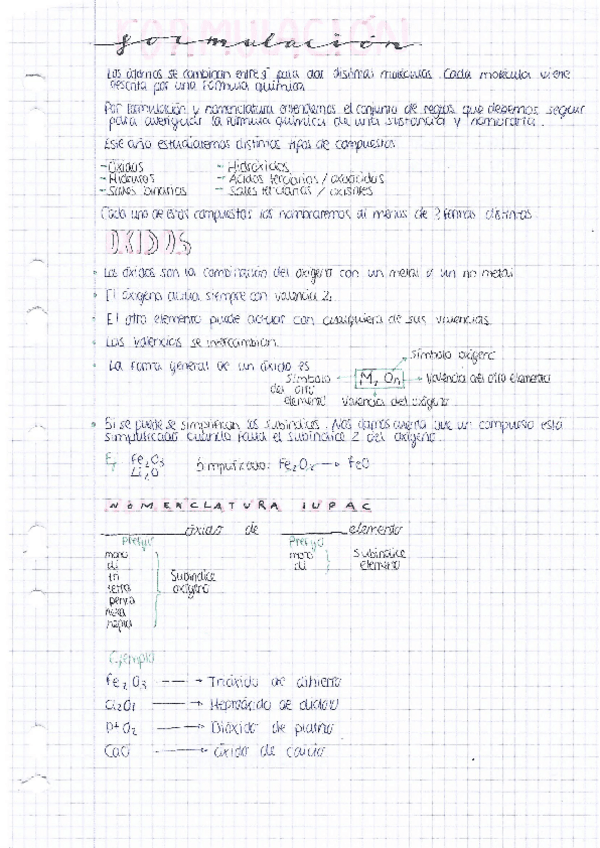 formulación
Los átomos se combinan entre sí para dar distintas moléculas. Cada molécula viene
descrita por una fórmula química.
Por formulación y nomenclatura entendemos el conjunto de reglas que debemos seguir
para averiguar la fórmula química de una sustancia y nombrarla.
Este año estudiaremos distintos tipos de compuestos
- Óxidos - Hidróxidos
- Hidruros - Ácidos terciarios / oxoácidos
- Sales binarias - Sales terciarias / oxisales
Cada uno de estos compuestos los nombraremos al menos de 3 formas distintas
OXIDOS
• Los óxidos son la combinación del oxígeno con un metal o un no metal
• El oxígeno actúa siempre con valencia 2.
• El otro elemento puede actuar con cualquiera de sus valencias
• Las valencias se intercambian.
• La forma general de un óxido es
símbolo oxígeno
símbolo del otro elemento
M₂ On
valencia del otro elemento
valencia del oxígeno
• Si se puede se simplifican los subíndices. Nos damos cuenta que un compuesto está
simplificado cuando falta el subíndice 2 del oxígeno.
Ej Fe₂O₃
Li₂O
Simplificado: Fe₂O₂ → FeO
NOMENCLATURA IUPAC
óxido de elemento
Prefijo Prefijo
mono
di
tri
tetra
penta
hexa
hepta
Subíndice
oxígeno
mono
di
subíndice
elemento
Ejemplo
Fe₂O₃ → Trióxido de dihierro
Cl₂O₇ → Heptaóxido de dicloro
PtO₂ → Dióxido de platino
CaO → óxido de calcio